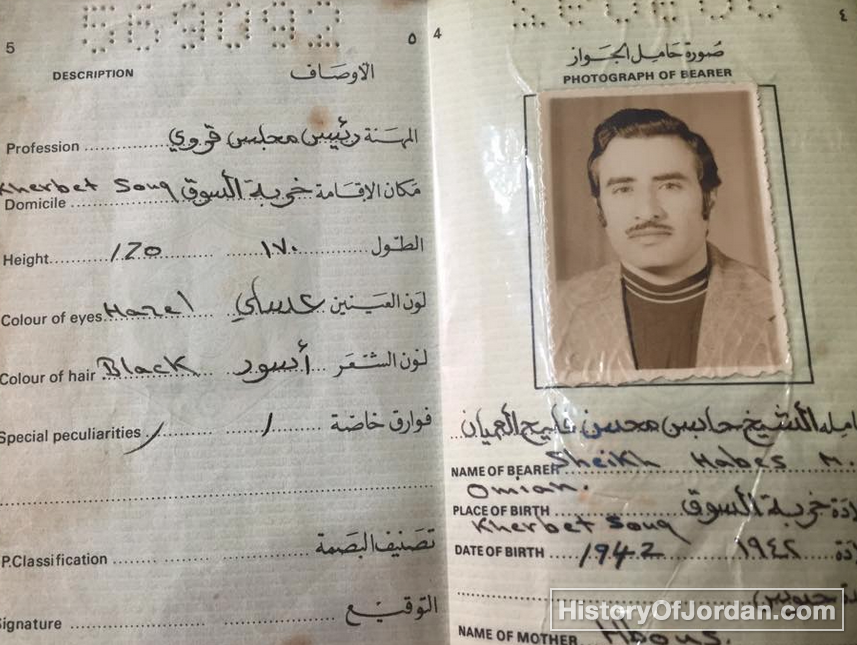 5
569092
٥
DESCRIPTION
الاوصاف
Profession
رئيس مجلس قروي
المهنة
Kherbet Souq
Domicile
خربة السوق
مكان الاقامة
Height
170
١٧٠
الطول
Colour of eyes
Hazel
عسلي
لون العينين
Colour of hair
Black
أسود
لون الشعر
Special peculiarities
/
/
فوارق خاصة
P.Classification
تصنيف البصمة
ignature
التوقيع
4
٤
صورة حامل الجواز
PHOTOGRAPH OF BEARER
الشيخ حابس محسن
العميان
NAME OF BEARER
Sheikh Habes M.
Omian.
PLACE OF BIRTH
خربة السوق
Kherbet Souq
DATE OF BIRTH
1942
١٩٤٢
NAME OF MOTHER
Hbous.
HistoryOfJordan.com